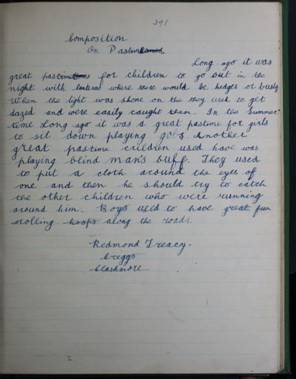 291
Composition
On Pastimes
Long ago it was
great pastime for children to go out in the
night with where would be hedges or bushy
When the light was shone on the they used to get
dazed and were easily caught then. In the summer
time long ago it was a great pastime for girls
to sit down playing Another
great pastime children used have was
playing blind man's buff. They used
to put a cloth around the eyes of
one and then he should try to catch
the other children who were running
around him. Boys used to have great fun
rolling hoops along the roads.
Redmond Treacy.
Creggs